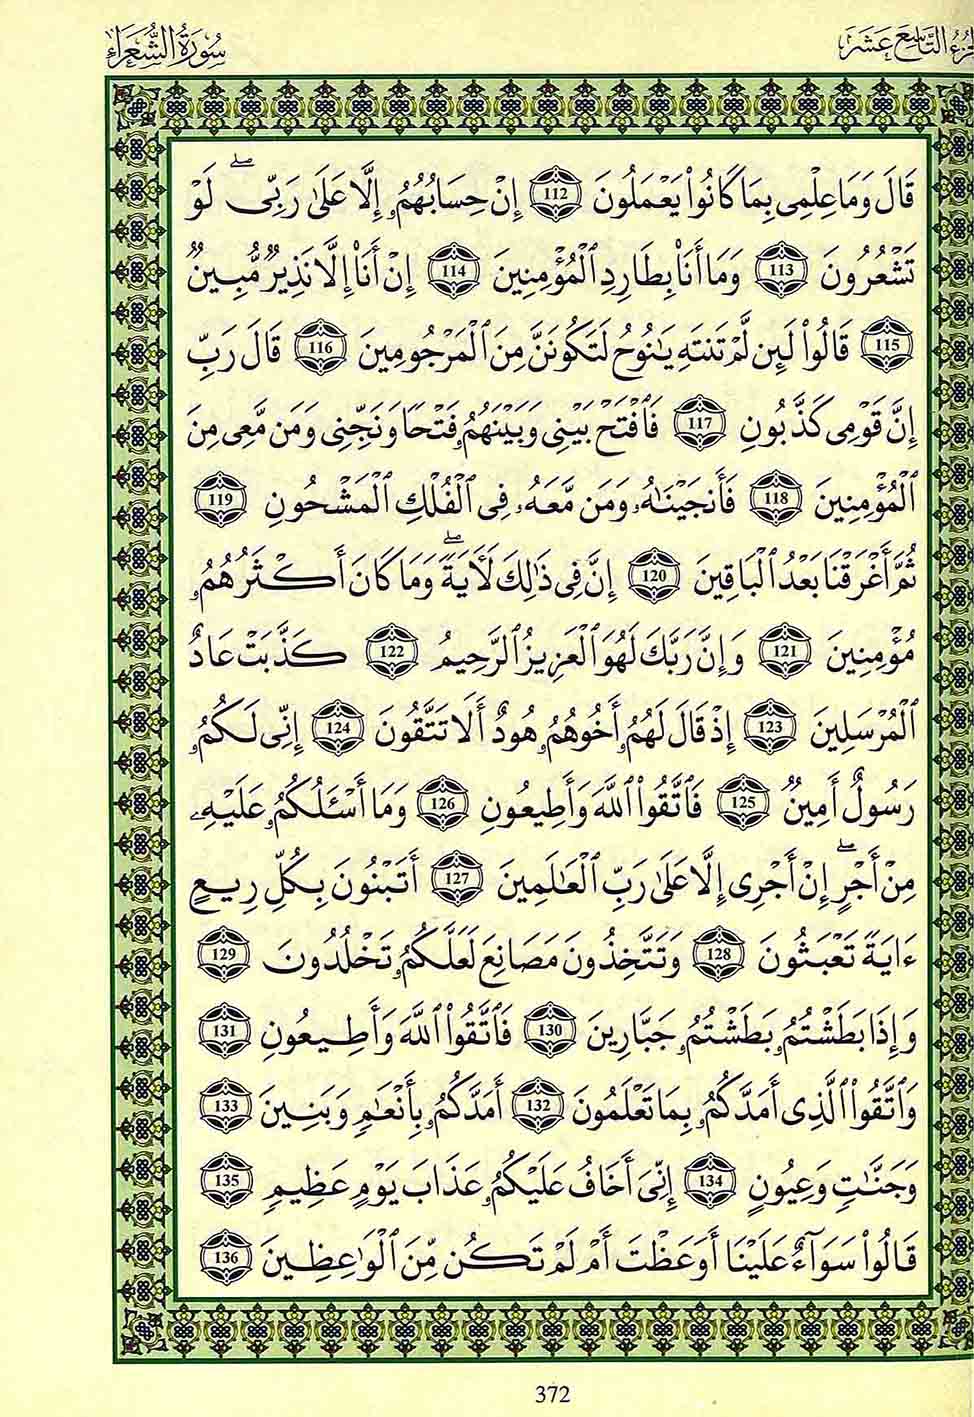 الجزء التاسع عشر
سورة الشعراء
قَالَ وَمَا عِلْمِى بِمَا كَانُوا۟ يَعْمَلُونَ 112 إِنْ حِسَابُهُمُۥ إِلَّا عَلَىٰ رَبِّى ۖ لَوْ
تَشْعُرُونَ 113 وَمَا أَنَا۠ بِطَارِدِ ٱلْمُؤْمِنِينَ 114 إِنْ أَنَا۠ إِلَّا نَذِيرٌ مُّبِينٌ
115 قَالُوا۟ لَئِن لَّمْ تَنتَهِ يَٰنُوحُ لَتَكُونَنَّ مِنَ ٱلْمَرْجُومِينَ 116 قَالَ رَبِّ
إِنَّ قَوْمِى كَذَّبُونِ 117 فَٱفْتَحْ بَيْنِى وَبَيْنَهُمُۥ فَتْحًا وَنَجِّنِى وَمَن مَّعِى مِنَ
ٱلْمُؤْمِنِينَ 118 فَأَنجَيْنَٰهُۥ وَمَن مَّعَهُۥ فِى ٱلْفُلْكِ ٱلْمَشْحُونِ 119
ثُمَّ أَغْرَقْنَا بَعْدُ ٱلْبَاقِينَ 120 إِنَّ فِى ذَٰلِكَ لَءَايَةً ۖ وَمَا كَانَ أَكْثَرُهُمُۥ
مُؤْمِنِينَ 121 وَإِنَّ رَبَّكَ لَهُوَ ٱلْعَزِيزُ ٱلرَّحِيمُ 122 كَذَّبَتْ عَادٌ
ٱلْمُرْسَلِينَ 123 إِذْ قَالَ لَهُمُۥ أَخُوهُمُۥ هُودٌ أَلَا تَتَّقُونَ 124 إِنِّى لَكُمُۥ
رَسُولٌ أَمِينٌ 125 فَٱتَّقُوا۟ ٱللَّهَ وَأَطِيعُونِ 126 وَمَا أَسْـَٔلُكُمُۥ عَلَيْهِۦ
مِنْ أَجْرٍ ۖ إِنْ أَجْرِى إِلَّا عَلَىٰ رَبِّ ٱلْعَٰلَمِينَ 127 أَتَبْنُونَ بِكُلِّ رِيعٍ
ءَايَةً تَعْبَثُونَ 128 وَتَتَّخِذُونَ مَصَانِعَ لَعَلَّكُمُۥ تَخْلُدُونَ 129
وَإِذَا بَطَشْتُمُۥ بَطَشْتُمُۥ جَبَّارِينَ 130 فَٱتَّقُوا۟ ٱللَّهَ وَأَطِيعُونِ 131
وَٱتَّقُوا۟ ٱلَّذِى أَمَدَّكُمُۥ بِمَا تَعْلَمُونَ 132 أَمَدَّكُمُۥ بِأَنْعَٰمٍ وَبَنِينَ 133
وَجَنَّٰتٍ وَعِيُونٍ 134 إِنِّىَ أَخَافُ عَلَيْكُمُۥ عَذَابَ يَوْمٍ عَظِيمٍ 135
قَالُوا۟ سَوَآءٌ عَلَيْنَا أَوَعَظْتَ أَمْ لَمْ تَكُن مِّنَ ٱلْوَٰعِظِينَ 136
372